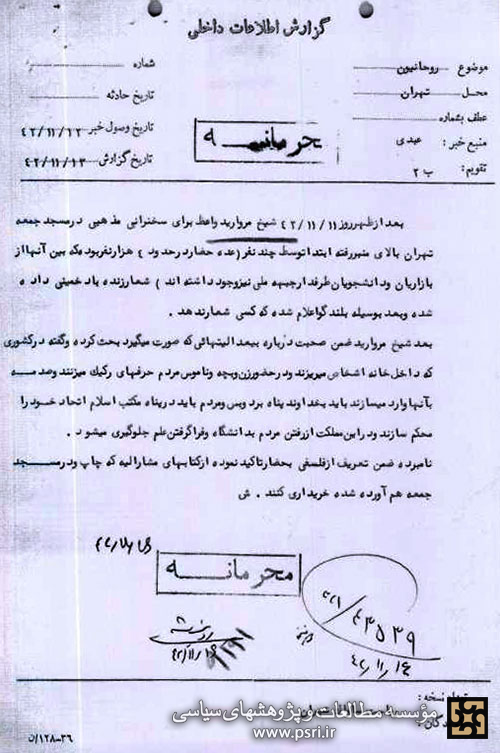 گزارش اطلاعات داخلی
موضوع روحانیون شماره
محل تهران تاریخ حادثه
عطف بشماره تاریخ وصول خبر ۴۲/۱۱/۱۲
منبع خبر : عبدی تاریخ گزارش ۴۲/۱۱/۱۳
تقویم : ب ۲
محرمانـه
بعد از ظهر روز ۴۲/۱۱/۱۱ شیخ مروارید واعظ برای سخنرانی مذهبی در مسجد جمعه
تهران بالای منبر رفته ابتدا توسط چند نفر (عده حضار در حدود ۴ هزار نفر بود که بین آنها از
بازاریان و دانشجویان طرفدار جبهه ملی نیز وجود داشته اند ) شعار زنده باد خمینی داده
شده و بعد بوسیله بلندگو اعلام شده که کسی شعار ندهد .
بعد شیخ مروارید ضمن صحبت درباره بیعدالتیهائی که صورت میگیرد بحث کرده و گفته در کشوری
که داخل خانه اشخاص میریزند و در حضور زن و بچه و ناموس مردم حرفهای رکیک میزنند و صدمـه
بآنها وارد میسازند باید بخداوند پناه برد و پس و مردم باید در پناه مکتب اسلام اتحاد خود را
محکم سازند و در این مملکت از رفتن مردم بدانشگاه و فرا گرفتن علم جلوگیری میشود .
نامبرده ضمن تعریف از فلسفی بحضار تاکید نموده از کتابهای مشارالیه که چاپ و در مسـجد
جمعه هم آورده شده خریداری کنند . ش
محرمانـه
۴۳۵۳۹ / ۳۲۱
۴۲/۱۱/۱۴
۴۲/۱۱/۱۶
مؤسسه مطالعات و پژوهشهای سیاسی
www.psri.ir
۵/۱۲۸-۳۶